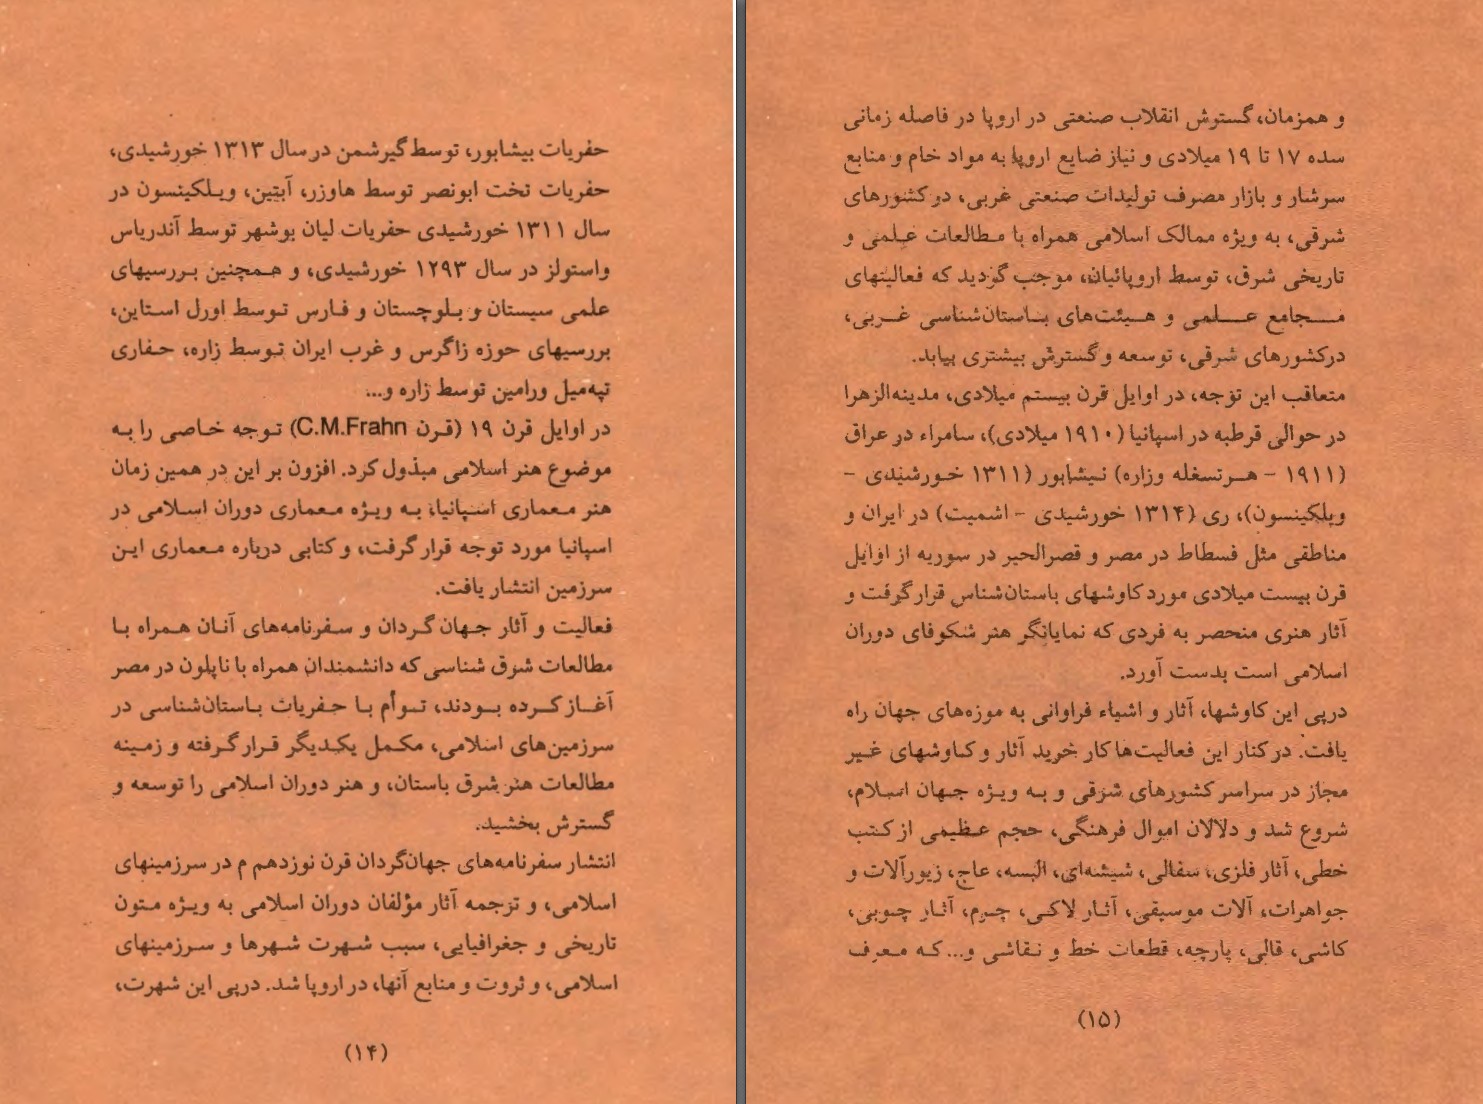 حفریات بیشابور، توسط گیرشمن در سال ۱۳۱۳ خورشیدی،
حفریات تخت ابونصر توسط هاوزر، آبتین، ویـلکینسون در
سال ۱۳۱۱ خورشیدی حفریات لیان بوشهر توسط آندریاس
واستولز در سال ۱۲۹۳ خورشیدی، و هـمچنین بـررسیهای
علمی سیستان و بـلوچستان و فـارس تـوسط اورل اسـتاین،
بررسیهای حوزه زاگرس و غرب ایران تـوسط زاره، حـفاری
تپه‌میل ورامین توسط زاره و...
در اوایل قرن ۱۹ (قـرن C.M.Frahn) تـوجه خـاصی را بـه
موضوع هنر اسلامی مبذول کرد. افزون بر این در همین زمان
هنر مـعماری اسـپانیا، بـه ویـژه مـعماری دوران اسـلامی در
اسپانیا مورد توجه قرار گرفت، و کتابی درباره مـعماری ایـن
سرزمین انتشار یافت.
فعالیت و آثار جـهان گـردان و سـفرنامه‌های آنـان هـمراه بـا
مطالعات شرق شناسی که دانشمندان همراه با ناپلون در مصر
آغـاز کـرده بـودند، تـوأم بـا حـفریات بـاستان‌شناسی در
سرزمین‌های اسلامی، مکـمل یکـدیگر قـرار گـرفته و زمـینه
مطالعات هنر شرق باستان، و هنر دوران اسلامی را توسعه و
گسترش بخشید.
انتشار سفرنامه‌های جهان‌گردان قرن نوزدهم م در سرزمینهای
اسلامی، و ترجمه آثار مؤلفان دوران اسلامی به ویـژه مـتون
تاریخی و جغرافیایی، سبب شـهرت شـهرها و سـرزمینهای
اسلامی، و ثروت و منابع آنها، در اروپا شد. درپی این شهرت،
(۱۴)
و همزمان، گسترش انقلاب صنعتی در اروپا در فاصله زمانی
سده ۱۷ تا ۱۹ میلادی و نیاز ضایع اروپا به مواد خام و منابع
سرشار و بازار مصرف تولیدات صنعتی غربی، در کشورهای
شرقی، به ویژه ممالک اسلامی همراه با مـطالعات عـلمی و
تاریخی شرق، توسط اروپائیان، موجب گردید که فعالیتهای
مـجامع عـلمی و هـیئت‌های بـاستان‌شناسی غـربی،
درکشورهای شرقی، توسعه و گسترش بیشتری بیابد.
متعاقب این توجه، در اوایل قرن بیستم میلادی، مدینه‌الزهرا
در حوالی قرطبه در اسپانیا (۱۹۱۰ میلادی)، سامراء در عراق
(۱۹۱۱ - هـرتسغله وزاره) نـیشابور (۱۳۱۱ خـورشیدی -
ویلکینسون)، ری (۱۳۱۴ خورشیدی - اشمیت) در ایران و
مناطقی مثل فسطاط در مصر و قصرالحیر در سوریه از اوایل
قرن بیست میلادی مورد کاوشهای باستان‌شناس قرار گرفت و
آثار هنری منحصر به فردی که نمایانگر هنر شکوفای دوران
اسلامی است بدست آورد.
درپی این کاوشها، آثار و اشیاء فراوانی به موزه‌های جهان راه
یافت. در کنار این فعالیت‌ها کار خرید آثار و کـاوشهای غـیر
مجاز در سراسر کشورهای شرقی و بـه ویـژه جـهان اسـلام،
شروع شد و دلالان اموال فرهنگی، حجم عـظیمی از کـتب
خطی، آثار فلزی، سفالی، شیشه‌ای، البسه، عاج، زیورآلات و
جواهرات، آلات موسیقی، آثـار لاکـی، چـرم، آثـار چـوبی،
کاشی، قالی، پارچه، قطعات خط و نـقاشی و... کـه مـعرف
(۱۵)